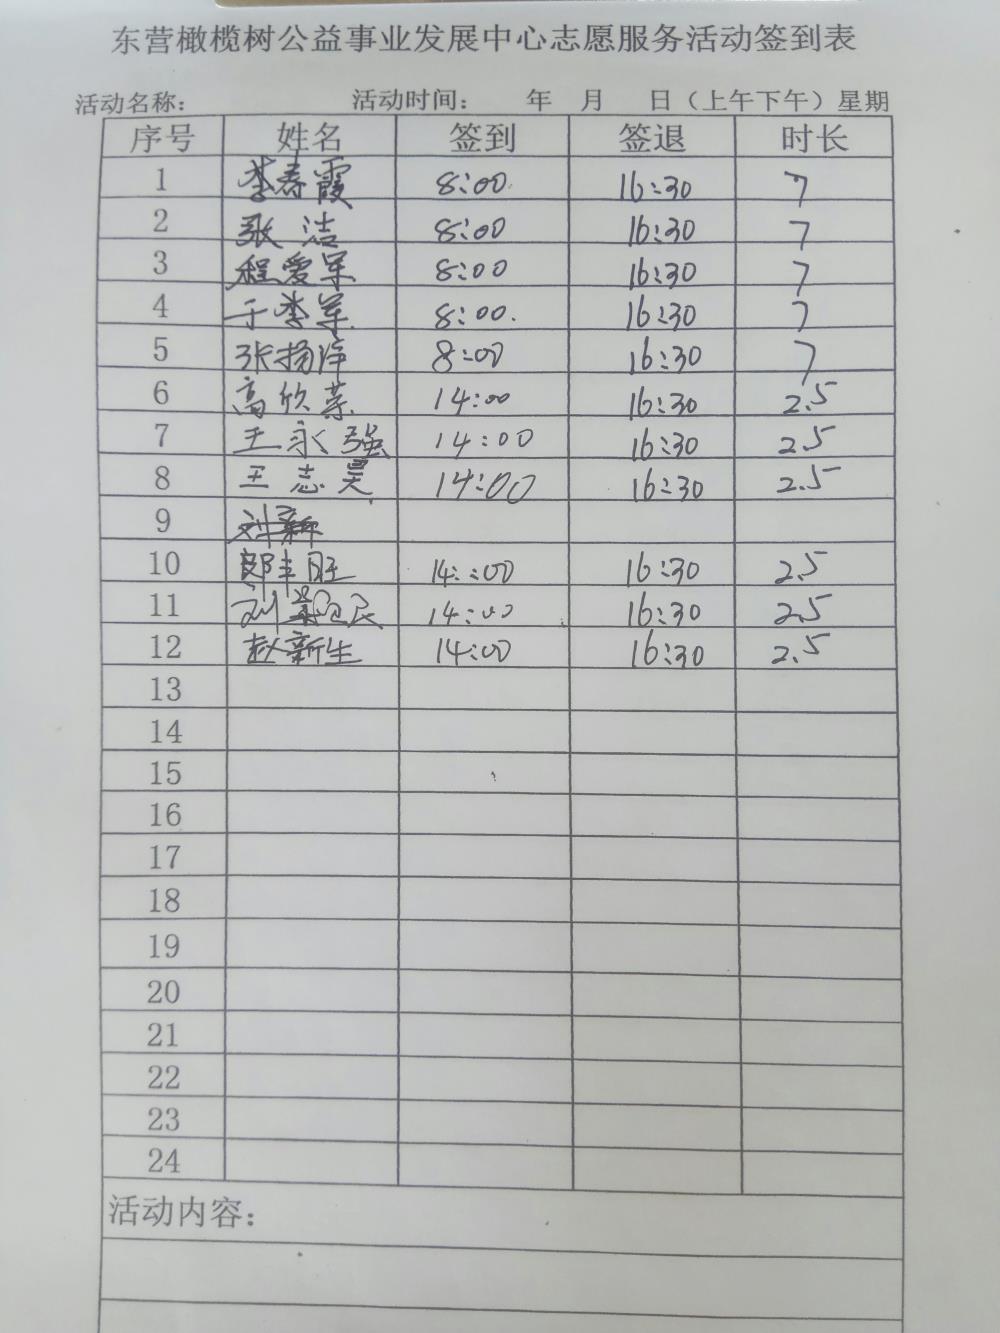 东营橄榄树公益事业发展中心志愿服务活动签到表
活动名称： 活动时间： 年 月 日（上午下午）星期
序号 姓名 签到 签退 时长
1 李春霞 8:00 16:30 7
2 张洁 8:00 16:30 7
3 程爱军 8:00 16:30 7
4 于李军 8:00. 16:30 7
5 张扬 8:00 16:30 7
6 高欣荣 14:00 16:30 2.5
7 王永强 14:00 16:30 2.5
8 王志昊 14:00 16:30 2.5
9 刘新
10 14:00 16:30 2.5
11 刘 民 14:00 16:30 2.5
12 赵新生 14:00 16:30 2.5
13
14
15
16
17
18
19
20
21
22
23
24
活动内容：